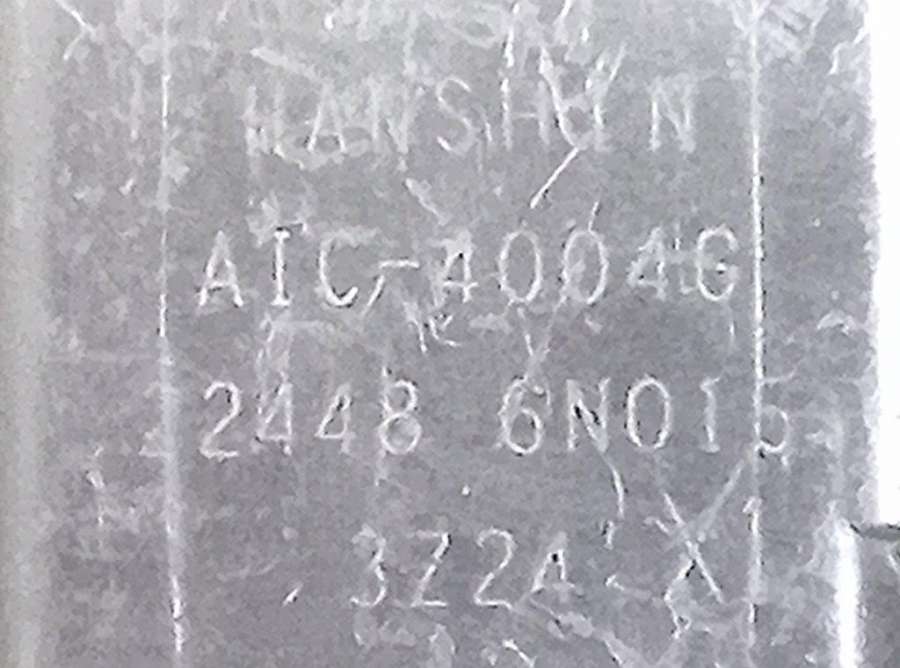 HANSHIN
AIC-4004G
2448 6N015
3Z2A